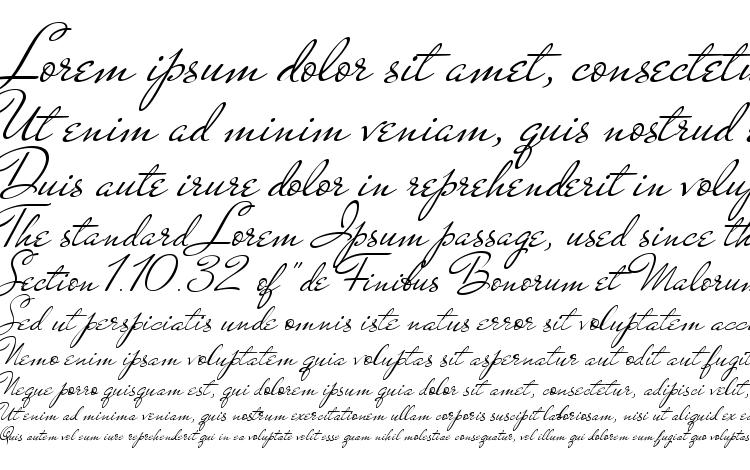 Lorem ipsum dolor sit amet, consectetu
Ut enim ad minim veniam, quis nostrud
Duis aute irure dolor in reprehenderit in volup
The standard Lorem Ipsum passage, used since th
Section 1.10.32 of "de Finibus Bonorum et Malorum
Sed ut perspiciatis unde omnis iste natus error sit voluptatem accu
Nemo enim ipsam voluptatem quia voluptas sit aspernatur aut odit aut fugit
Neque porro quisquam est, qui dolorem ipsum quia dolor sit amet, consectetur, adipisci velit,
Ut enim ad minima veniam, quis nostrum exercitationem ullam corporis suscipit laboriosam, nisi ut aliquid ex ea
Quis autem vel eum iure reprehenderit qui in ea voluptate velit esse quam nihil molestiae consequatur, vel illum qui dolorem eum fugiat quo voluptas